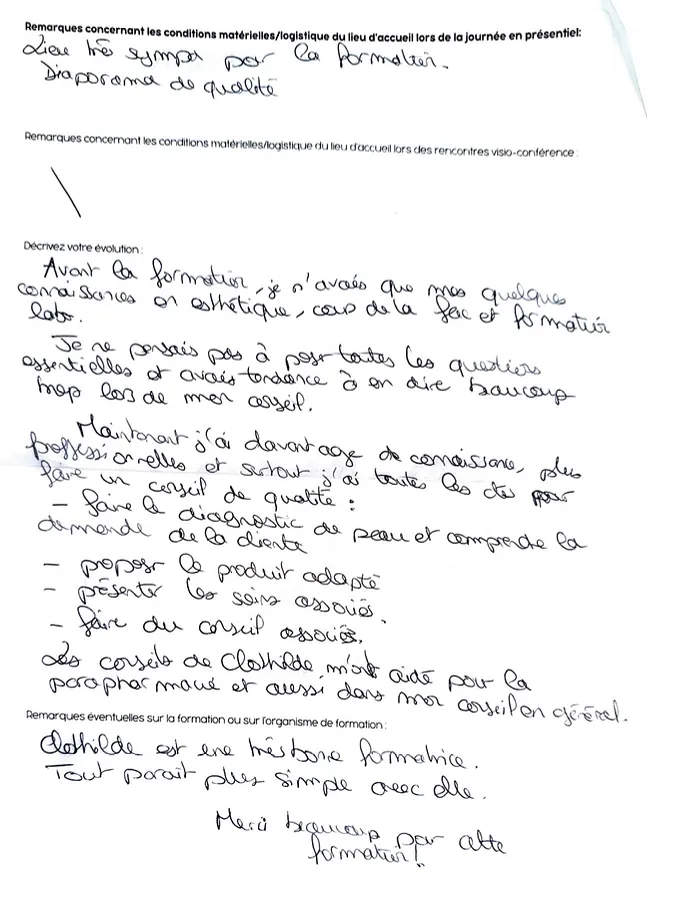 Remarques concernant les conditions matérielles/logistique du lieu d'accueil lors de la journée en présentiel:
Lieu très sympa pour la formation.
Diaporama de qualité
Remarques concernant les conditions matérielles/logistique du lieu d'accueil lors des rencontres visio-conférence :
Décrivez votre évolution :
Avant la formation, je n'avais que mes quelques
connaissances en esthétique, cours de la fac et formation
labo.
Je ne pensais pas à poser toutes les questions
essentielles et avais tendance à en dire beaucoup
trop lors de mon conseil.
Maintenant j'ai davantage de connaissance, plus
professionnelles et surtout j'ai toutes les clés pour
faire un conseil de qualité :
- faire le diagnostic de peau et comprendre la
demande de la cliente
- poposer le produit adapté
- présenter les soins associés.
- faire du conseil associés.
Les conseils de Clothilde m'ont aidé pour la
parapharmacie et aussi dans mon conseil en général.
Remarques éventuelles sur la formation ou sur l'organisme de formation :
Clothilde est une très bonne formatrice.
Tout parait plus simple avec elle.
Merci beaucoup pour cette
formation !